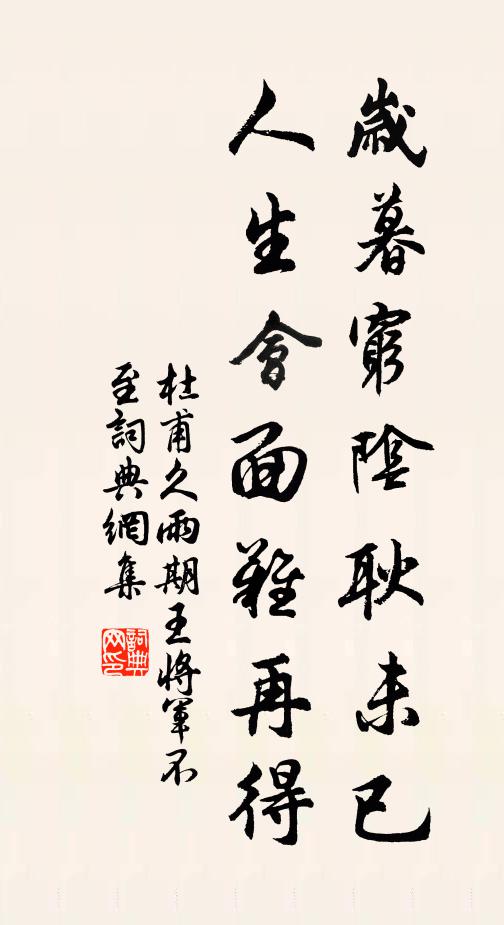 歲暮窮陰耿未已
人生會面難再得
杜甫久雨期王將軍不
至詞典網集
詞典
网印